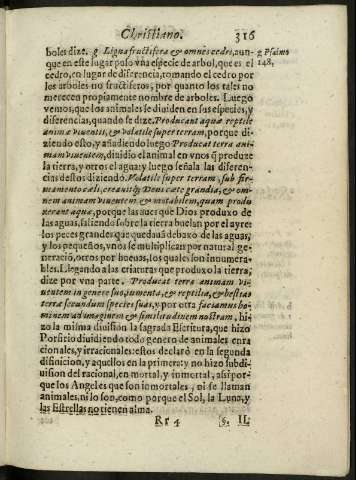 Christiano. 316
boles dize. g Ligna fructifera & omnes cedri, aun- g Psalmo
que en este lugar puso vna especie de arbol, que es el 148.
cedro, en lugar de diferencia, tomando el cedro por
los arboles no fructiferos, por quanto los tales no
merecen propiamente nombre de arboles. Luego
vemos, que los animales se diuiden en sus especies, y
diferencias, quando se dize. Producant aquæ reptile
animæ viuentis, & volatile super terram, porque di-
ziendo esto, y añadiendo luego Producat terra ani-
mam viuentem, diuidio el animal en vnos q̃ produze
la tierra, y otros el agua: y luego señala las diferen-
cias destos diziendo. Volatile super terram, sub fir-
mamento cæli, creauitq; Deus cæte grandia, & om-
nem animam viuentem & motabilem, quam produ
xerant aquæ, porque las aues que Dios produxo de
las aguas, saliendo sobre la tierra buelan por el ayre:
los peces grandes que quedaȷ debaxo de las aguas,
y los pequeños, vnos se multiplican por natural ge-
neraciō, otros por hueuos, los quales son innumera-
bles. Llegando a las criaturas que produxo la tierra,
dize por vna parte. Producat terra animam vi-
uentem in genere suo, iumenta, & reptilia, & bestias
terræ secundum species suas, y por otra faciamus ho-
minem ad imaginem & similitudinem nostram, hi-
zo la misma diuision la sagrada Escritura, que hizo
Porfirio diuidiendo todo genero de animales en ra
cionales, y irracionales: estos declaró en la segunda
difinicion, y aquellos en la primera: y no hizo subdi-
uision del racional, en mortal, y inmortal, assi por-
que los Angeles que son inmortales, ni se llaman
animales, ni lo son, como porque el Sol, la Luna, y
las Estrellas no tienen alma.
Rr 4 §. II.